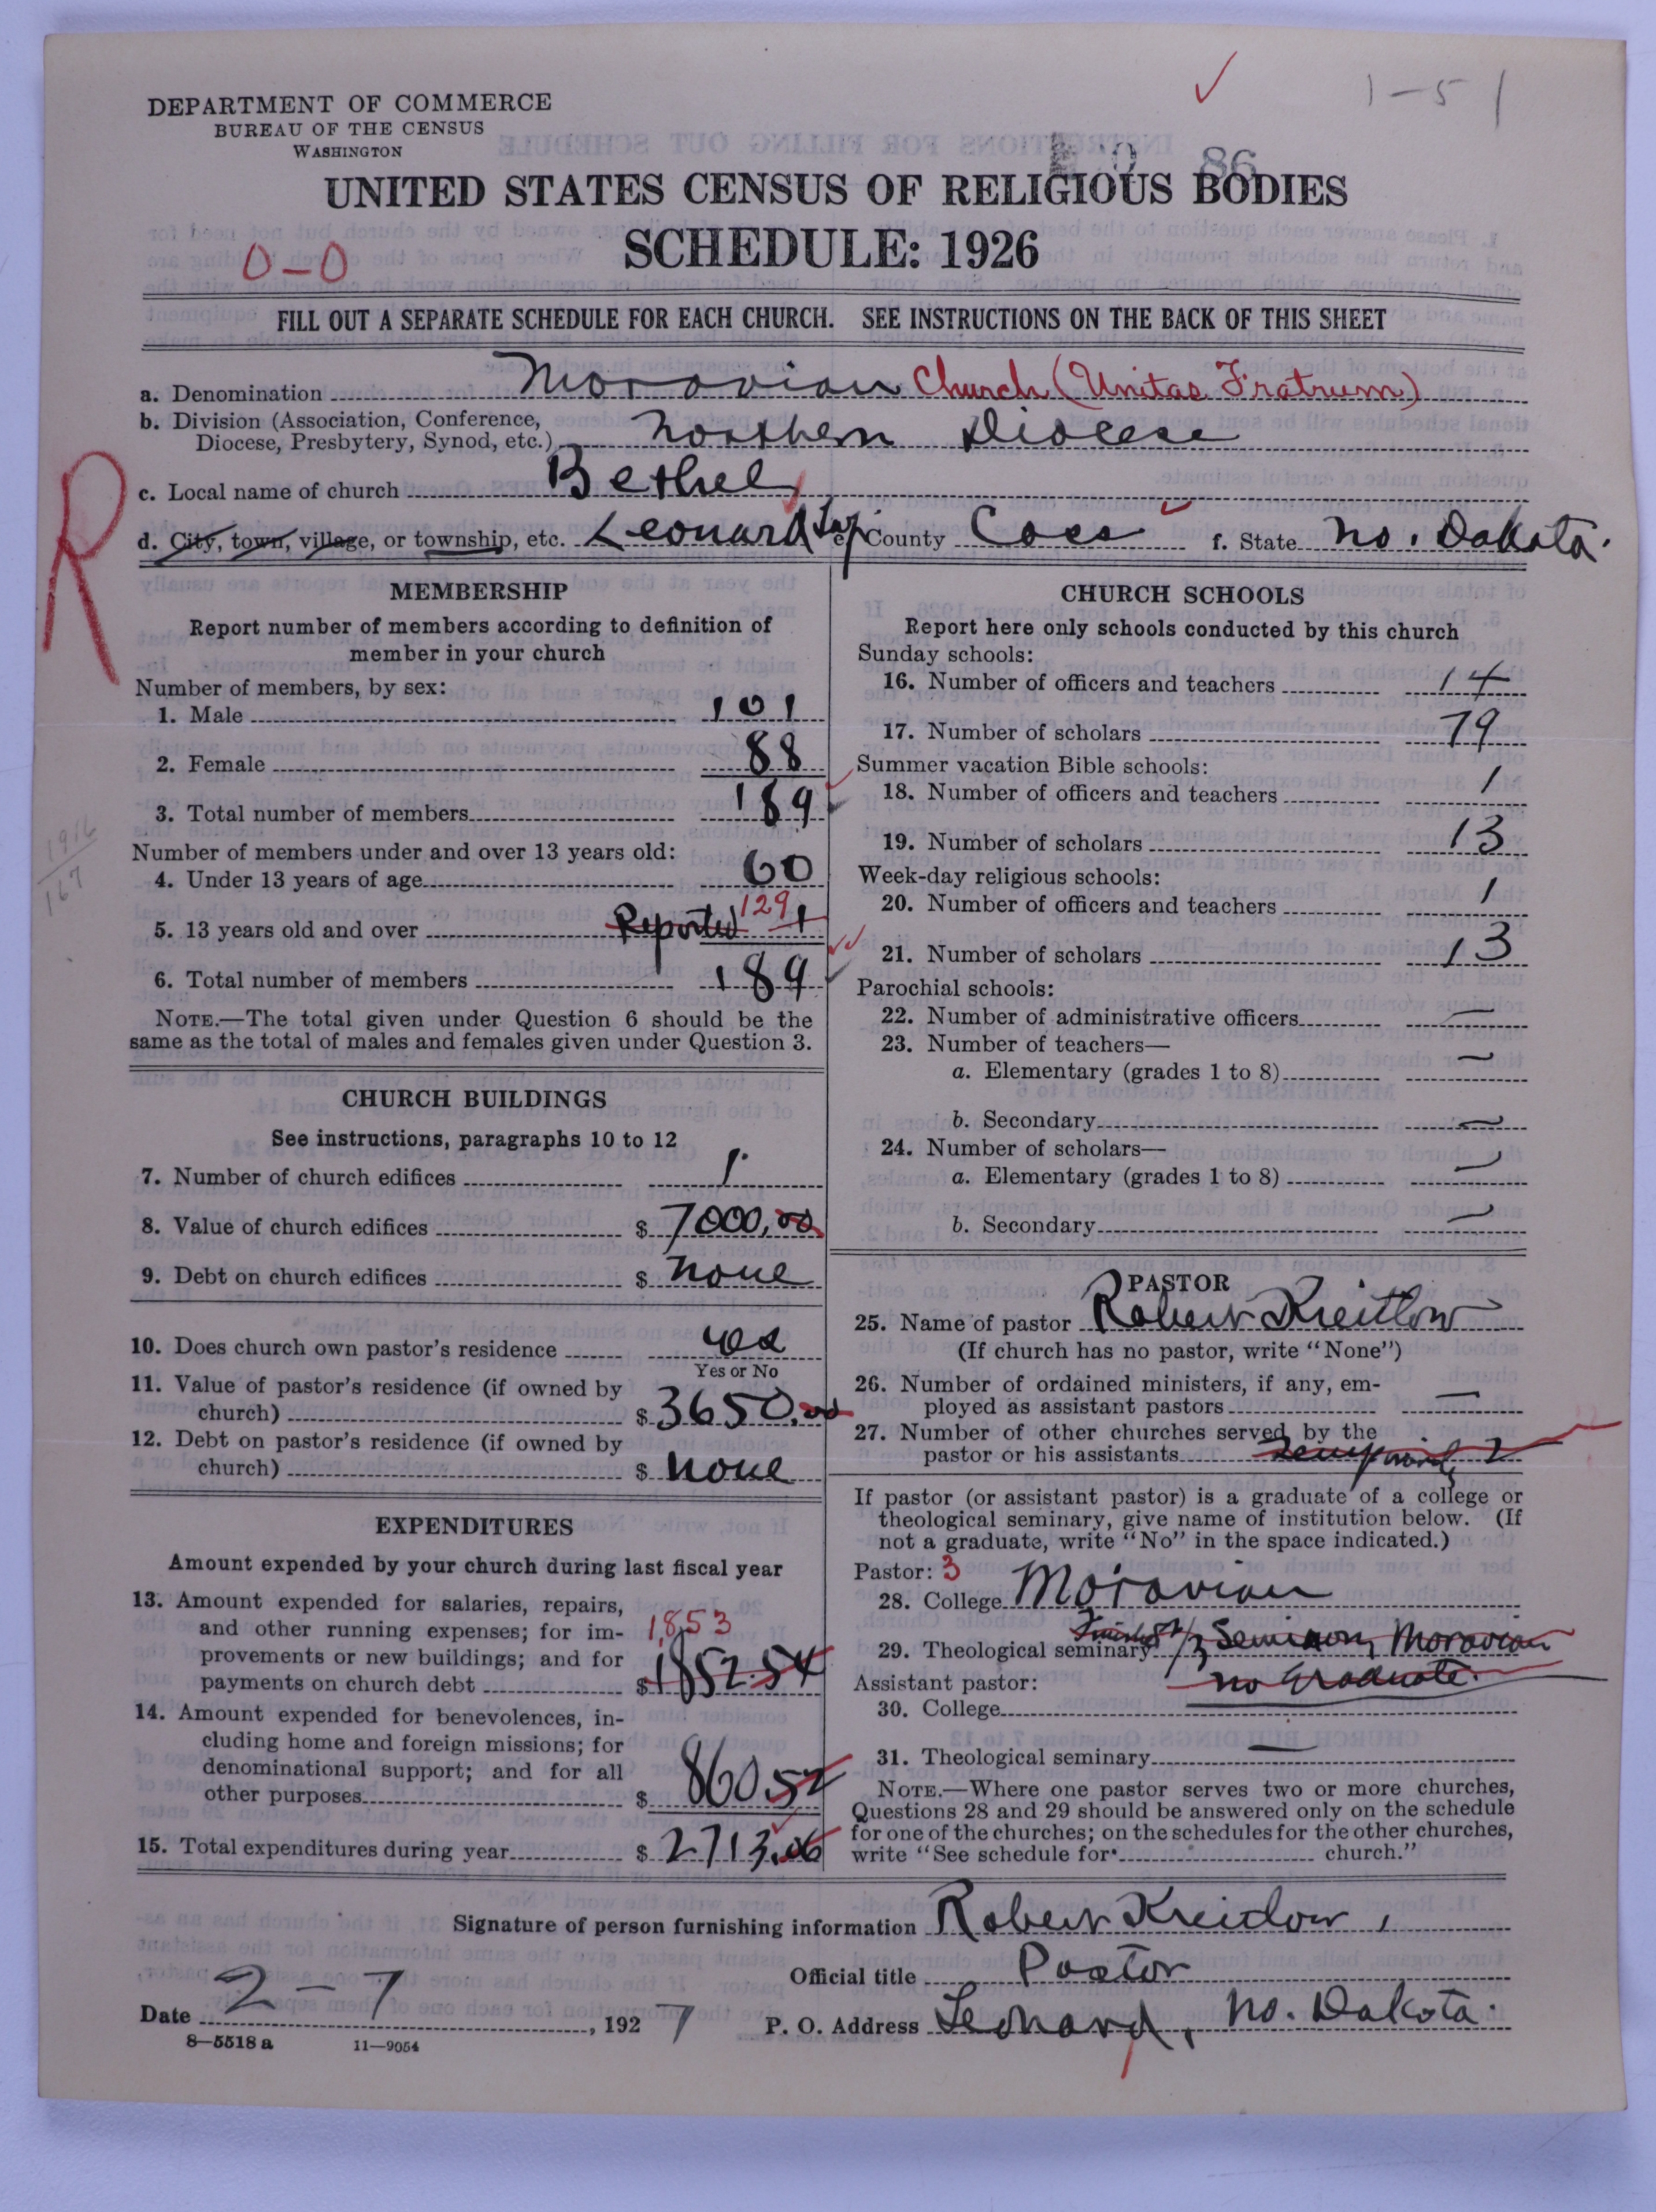 1-51
DEPARTMENT OF COMMERCE
BUREAU OF THE CENSUS
WASHINGTON
86
UNITED STATES CENSUS OF RELIGIOUS BODIES
SCHEDULE: 1926
0-0
FILL OUT A SEPARATE SCHEDULE FOR EACH CHURCH. SEE INSTRUCTIONS ON THE BACK OF THIS SHEET
a. Denomination Moravian Church (Unitas Fratrum)
b. Division (Association, Conference,
Diocese, Presbytery, Synod, etc.) Northern Diocese
R
c. Local name of church Bethel
d. City, town, village, or township, etc. Leonard Twp e. County Cass f. State No. Dakota.
MEMBERSHIP
Report number of members according to definition of
member in your church
Number of members, by sex:
1. Male 101
2. Female 88
3. Total number of members 189
1916
167
Number of members under and over 13 years old:
4. Under 13 years of age 60
5. 13 years old and over Reported 129 1
6. Total number of members 189
NOTE.—The total given under Question 6 should be the
same as the total of males and females given under Question 3.
CHURCH BUILDINGS
See instructions, paragraphs 10 to 12
7. Number of church edifices 1
8. Value of church edifices $ 7000,00
9. Debt on church edifices $ none
10. Does church own pastor's residence yes
Yes or No
11. Value of pastor's residence (if owned by
church) $ 3650.00
12. Debt on pastor's residence (if owned by
church) $ none
EXPENDITURES
Amount expended by your church during last fiscal year
13. Amount expended for salaries, repairs,
and other running expenses; for im- 1,853
provements or new buildings; and for
payments on church debt $ 1852.54
14. Amount expended for benevolences, in-
cluding home and foreign missions; for
denominational support; and for all
other purposes $ 860.52
15. Total expenditures during year $ 2713.06
CHURCH SCHOOLS
Report here only schools conducted by this church
Sunday schools:
16. Number of officers and teachers 14
17. Number of scholars 79
Summer vacation Bible schools:
18. Number of officers and teachers 1
19. Number of scholars 13
Week-day religious schools:
20. Number of officers and teachers 1
21. Number of scholars 13
Parochial schools:
22. Number of administrative officers —
23. Number of teachers—
a. Elementary (grades 1 to 8) —
b. Secondary —
24. Number of scholars—
a. Elementary (grades 1 to 8) —
b. Secondary —
PASTOR
25. Name of pastor Robert Kreitlow
(If church has no pastor, write "None")
26. Number of ordained ministers, if any, em-
ployed as assistant pastors —
27. Number of other churches served by the
pastor or his assistants 2
If pastor (or assistant pastor) is a graduate of a college or
theological seminary, give name of institution below. (If
not a graduate, write "No" in the space indicated.)
Pastor: 3
28. College Moravian
29. Theological seminary Seminary Moravian
no Graduate.
Assistant pastor:
30. College
31. Theological seminary —
NOTE.—Where one pastor serves two or more churches,
Questions 28 and 29 should be answered only on the schedule
for one of the churches; on the schedules for the other churches,
write "See schedule for church."
Signature of person furnishing information Robert Kreitlow,
Official title Pastor
Date 2-7, 1927 P. O. Address Leonard, No. Dakota.
8—5518 a 11—9054